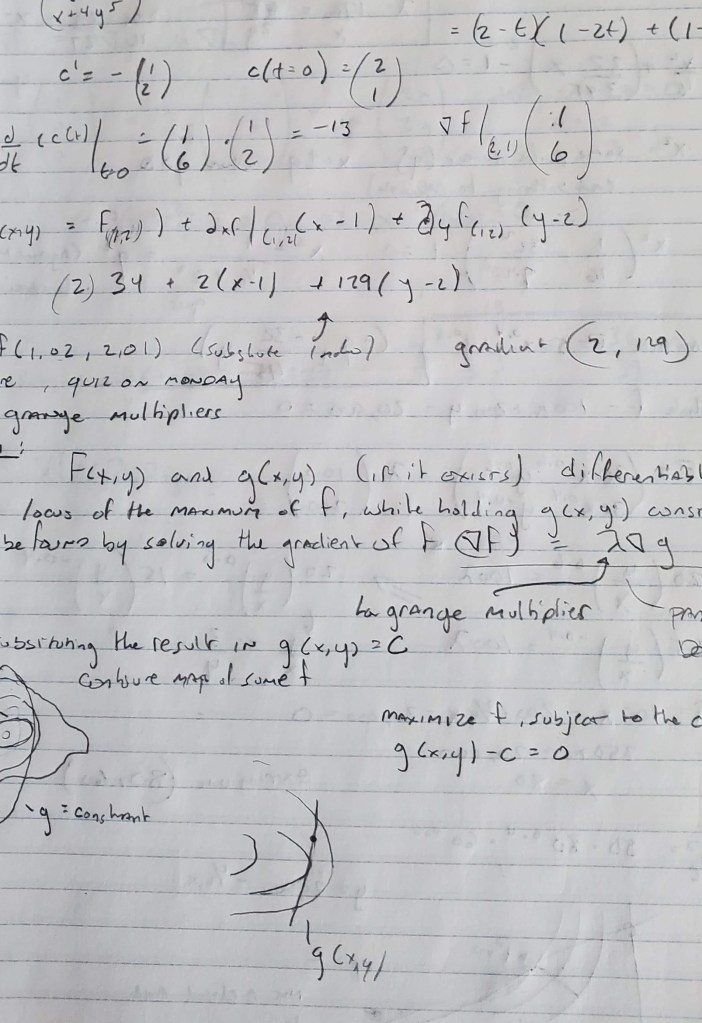 (x+4y⁵)
= (2-t)(1-2t) + (1-
c' = -(1 2) c(t=0) = (2 1)
d/dt (c(t)|t=0 = (1 6)·(1 2) = -13 ∇f|(2,1) (1 6)
(x,y) = F(1,2)) + ∂xf|(1,2)(x-1) + ∂yf(1,2) (y-2)
(2) 34 + 2(x-1) + 129(y-2)
f(1,02, 2,01) (substute into) gradient (2, 129)
re, QUIZ ON MONDAY
grange multipliers
F(x,y) and g(x,y) (if it exists) differentiabl
locus of the maximum of f, while holding g(x,y) consr
be found by solving the gradient of f (∇F) = λ∇g
la grange multiplier
ubsituting the result in g(x,y) = C
contoure map of some f
maximize f, subject to the c
g(x,y) - c = 0
g = constant
g(x,y)